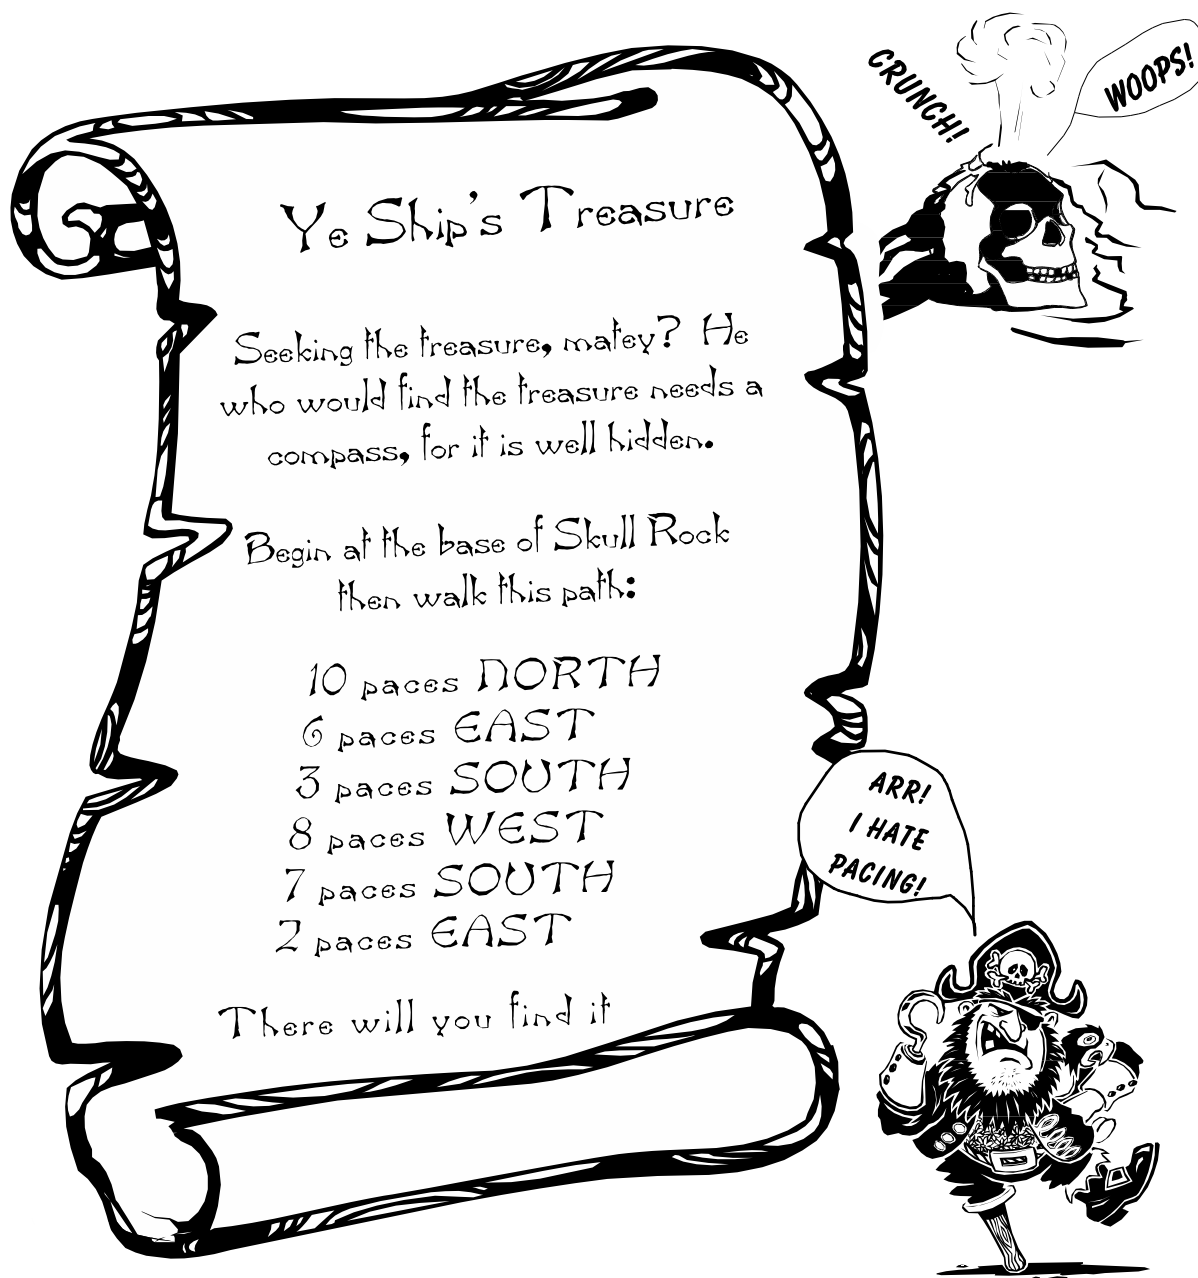 CRUNCH!
WOOPS!
Ye Ship's Treasure
Seeking the treasure, matey? He
who would find the treasure needs a
compass, for it is well hidden.
Begin at the base of Skull Rock
then walk this path:
10 paces NORTH
6 paces EAST
3 paces SOUTH
8 paces WEST
7 paces SOUTH
2 paces EAST
There will you find it
ARR!
I HATE
PACING!